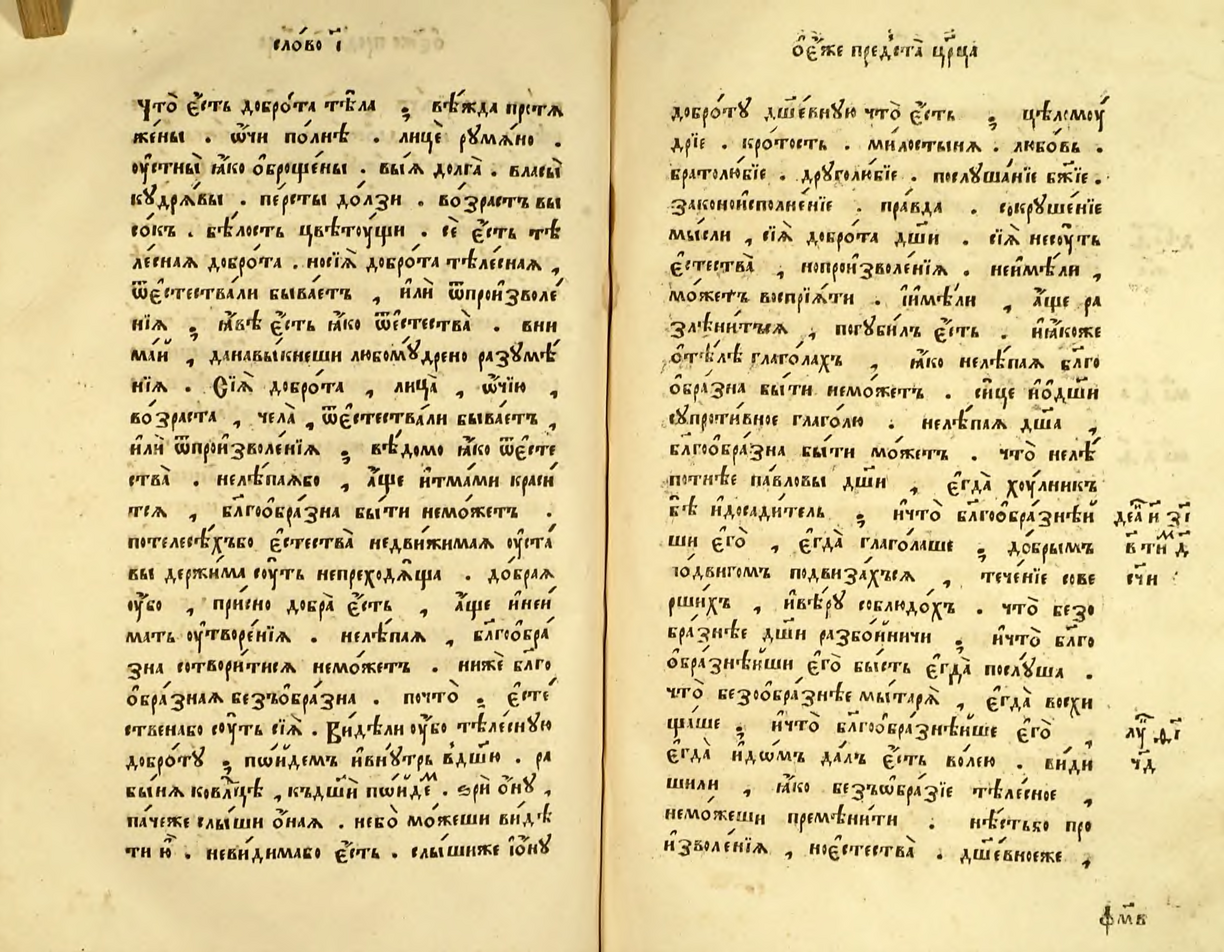 сло́во і҃
что̀ є҆́сть добро́та тѣ̑ла ; вѣ́жда протѧ
же́ны . ѡ҆́чи по́лнѣ . лицѐ рꙋмѧ́но .
оу҆стны̀ ꙗ҆́ко ѻ҆броще́ны . вы́ѧ долга̀ . власы̀
кꙋдрѧ́вы . пе́рсты до́лзи . во́зрастъ вы
со́къ . бѣ́лость цвѣтоу́щи . сѐ є҆́сть тѣ
ле́снаѧ добро́та . носїѧ̀ добро́та тѣле́снаѧ ,
ѿє҆стества́ли быва́етъ , и҆лѝ ѿпрои҆зволе́
нїѧ ; ꙗ҆́вѣ є҆́сть ꙗ҆́ко ѿє҆стества̀ . вни
ма́й , данавы́кнеши любомꙋ́дрено разꙋмѣ́
нїѧ . Сїѧ̀ добро́та , лица̀ , ѻ҆́чїю ,
во́зраста , чела̀ , ѿє҆стества́ли быва́етъ ,
и҆лѝ ѿпрои҆зволе́нїѧ ; вѣ́домо ꙗ҆́ко ѿє҆сте
ства̀ . нелѣ́паѧбо , а҆́ще и҆тма́ми краси́
тсѧ , бл҃гоѻ҆бра́зна бы́ти немо́жетъ .
потелесѣ́хъбо є҆стества̀ недви́жимаѧ оу҆ста́
вы держи́ма соу́ть непреходѧ̑ща . до́браѧ
оу҆́бо , при́сно добра̀ є҆́сть , а҆́ще и҆неи́
мать оу҆творе́нїѧ . нелѣ́паѧ , бл҃гоѻ҆бра́
зна сотвори́тисѧ немо́жетъ . ниже́ бл҃го
ѻ҆бра́знаѧ безъѻ҆бра́зна . почто̀ ; є҆сте́
ственабо соу́ть сїѧ̀ . Ви́дѣли оу҆́бо тѣле́сную
добро́тꙋ ; по́йдемъ и҆внꙋ́трь в̾дш҃ю . ра
бы́нѧ ковлцⷣчѣ , къдш҃и по́йдеⷨ . зрѝ ѻ҆́нꙋ ,
па́чеже слы́ши ѻ҆́наѧ . небо̀ мо́жеши ви́дѣ
ти ю҆̀ . неви́димабо є҆́сть . слы́шиже і҆ѻ҆́нꙋ
ѻ҆е҆́же предста̀ цр҃ца
добро́тꙋ дш҃е́вную что̀ є҆́сть ; цѣломоу́
дрїе . кро́тость . ми́лостынѧ . любо́вь .
братолю́бїе . дрꙋголю́бїе . послꙋша́нїе бж҃їе .
законои҆сполне́нїе . пра́вда . сокрꙋше́нїе
мы́сли , сїѧ̀ добро́та дш҃и . сїѧ̀ несоу́ть
є҆стества̀ , нопрои҆зволе́нїѧ . неи҆мѣ́ли ,
мо́жетъ воспрїѧ́ти . і҆и҆мѣ́ли , а҆́ще ра
злѣни́тъсѧ , погꙋби́лъ є҆́сть . и҆ꙗ҆́коже
ѻ҆тѣ́лѣ глаго́лахъ , ꙗ҆́ко нелѣ́паѧ бл҃го
ѻ҆бра́зна бы́ти немо́жетъ . си́це и҆ѻ҆дш҃и
сꙋпроти́вное глаго́лю . нелѣ́паѧ дш҃а ,
бл҃гоѻ҆бра́зна бы́ти мо́жетъ . что̀ нелѣ́
потнѣе па́вловы дш҃и , є҆гда̀ хоу́лникъ
бѣ̀ и҆досади́тель ; и҆что̀ бл҃гоѻ҆бра́знѣй
ши є҆гѡ̀ , є҆гда̀ глаго́лаше ; до́брымъ
подвигомъ подвиза́хъсѧ , тече́нїе сове
рши́хъ , и҆вѣ́рꙋ соблюдо́хъ . что̀ безо
бра́знѣе дш҃и разбо́йничи ; и҆что̀ бл҃го
ѻ҆бра́знѣйши є҆гѡ̀ бы́сть є҆гда̀ послꙋ́ша .
что̀ безоѻ҆бра́знѣе мытарѧ̀ , є҆гда̀ восхи
ща́ше ; и҆что̀ бл҃гоѻ҆бра́знѣйше є҆гѡ̀ ,
є҆гда̀ и҆до́мъ да́лъ є҆́сть во́лею . ви́ди
шили , ꙗ҆́ко безъѡ҆бра́зїе тѣле́сное ,
немо́жеши премѣни́ти . нѣ́стьбо про
и҆зволе́нїѧ , ноє҆стества̀ . дш҃е́вноеже ,
деѧⷩ҇ и҆ з҃і
в҃ тиⷨ д҃
сч҃и
лꙋⷦ҇ д҃і
ч҃д
фм҃в